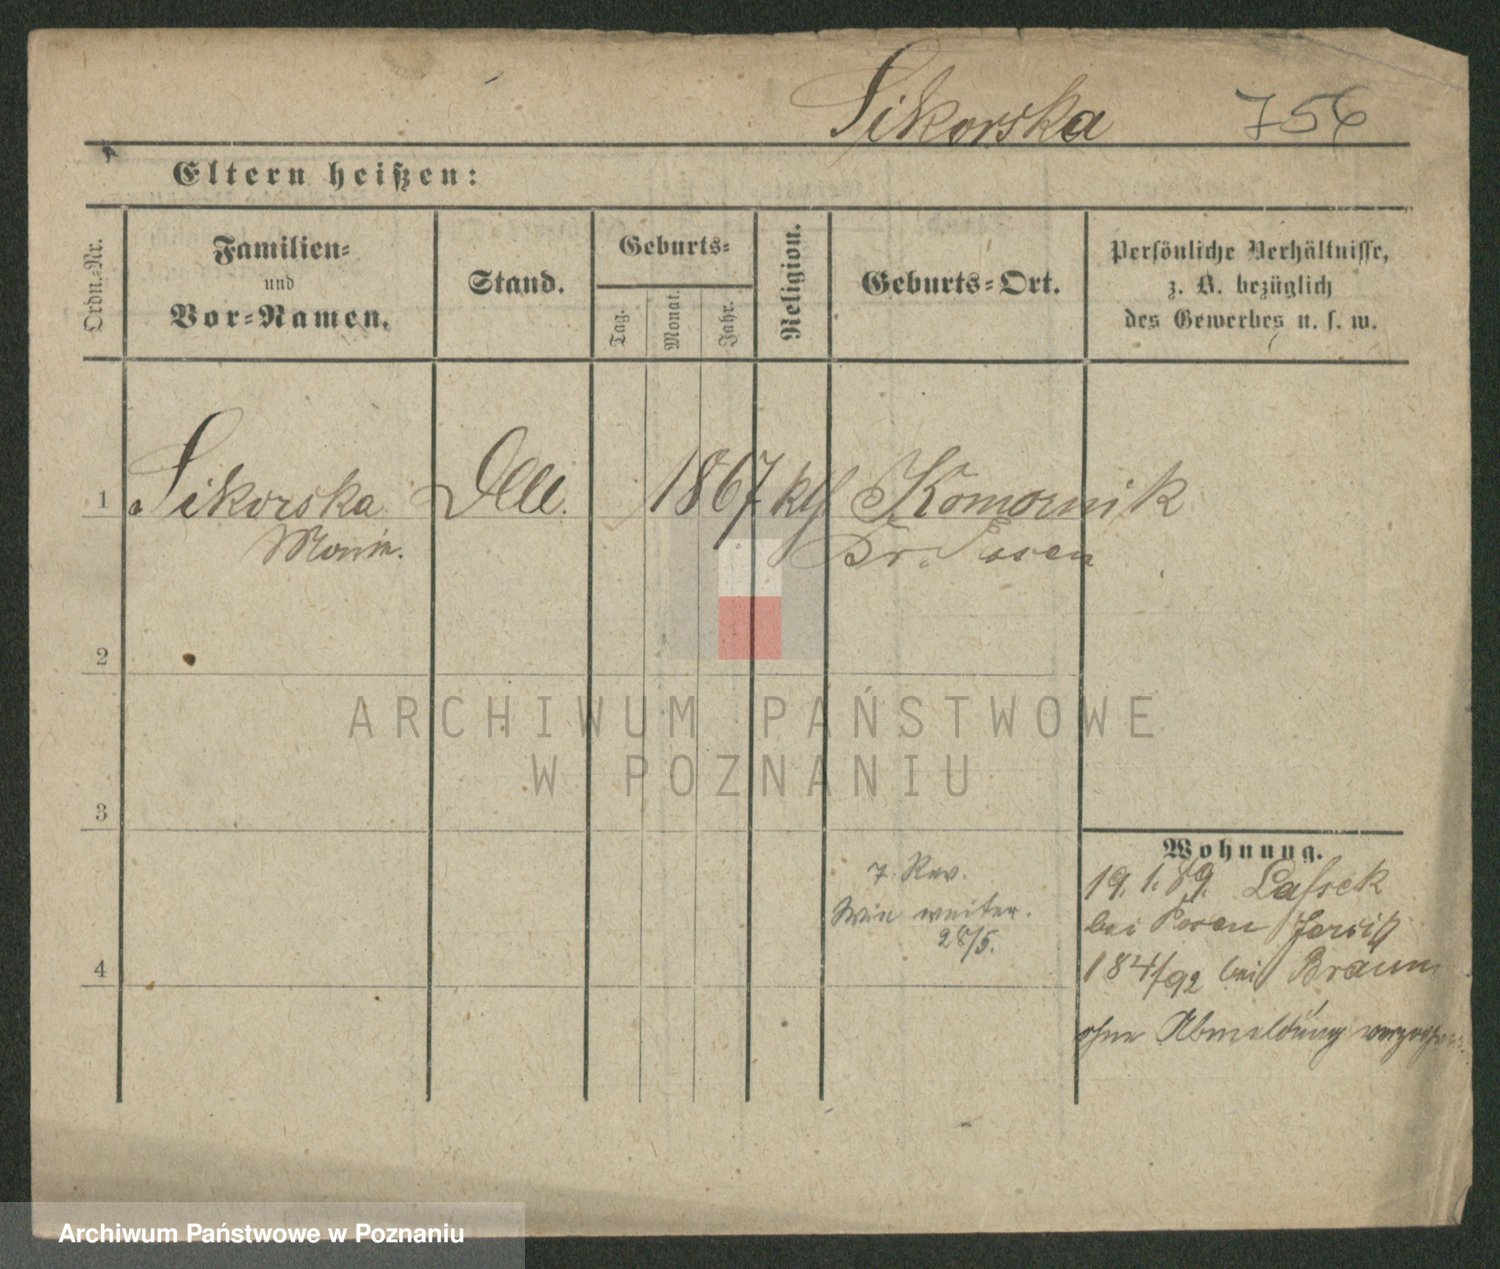 Sikorska 756
Eltern heißen:
Ordn.-Nr.
Familien-
und
Vor-Namen.
Stand.
Geburts-
Tag.
Monat.
Jahr.
Religion.
Geburts-Ort.
Persönliche Verhältnisse,
z. B. bezüglich
des Gewerbes u. s. w.
1 Sikorska 1867 kth Komornik
Kr. Posen
2
ARCHIWUM PAŃSTWOWE
W POZNANIU
3
Wohnung.
7. Rev.
19. 1. 89. Lassek
Wie weiter.
bei Posen Jersitz
28/5.
4
184/92 bei Braun
ohne Abmeldung verzogen.
Archiwum Państwowe w Poznaniu